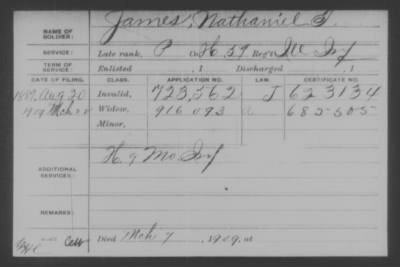 NAME OF SOLDIER: James, Nathaniel S.
SERVICE: Late rank, P Co. H. 59 Reg't Ill Inf
TERM OF SERVICE: Enlisted , 1 Discharged , 1
DATE OF FILING. CLASS. APPLICATION NO. LAW CERTIFICATE NO.
1889, Aug 20 Invalid, 723,562 J 623134
1909 Mch Widow, 916 093 685505
Minor,
ADDITIONAL SERVICES: H. 9 Mo. Inf
REMARKS:
Died Mch 7, 1909, at